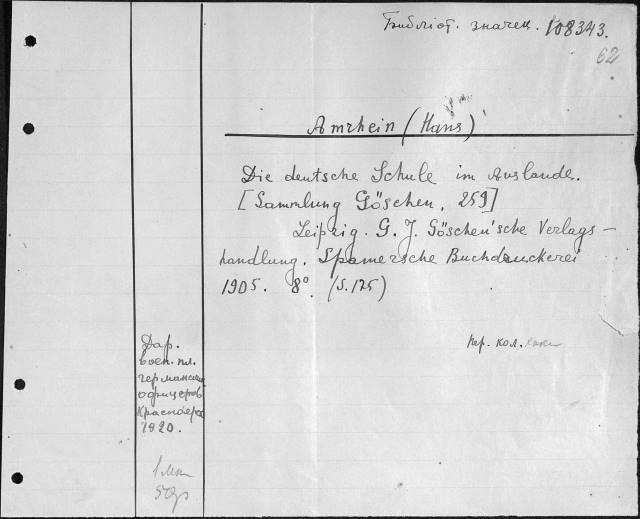 Библіот. значен. 108343.
62
Amrhein (Hans)
Die deutsche Schule im Auslande.
[Sammlung Göschen, 259]
Leipzig. G. J. Göschen'sche Verlags-
handlung. Spamersche Buchdruckerei
1905. 8° (S. 125)
Пер. кол.
Дар.
воен. пл.
германских
офицеров
Красноярск
1920.